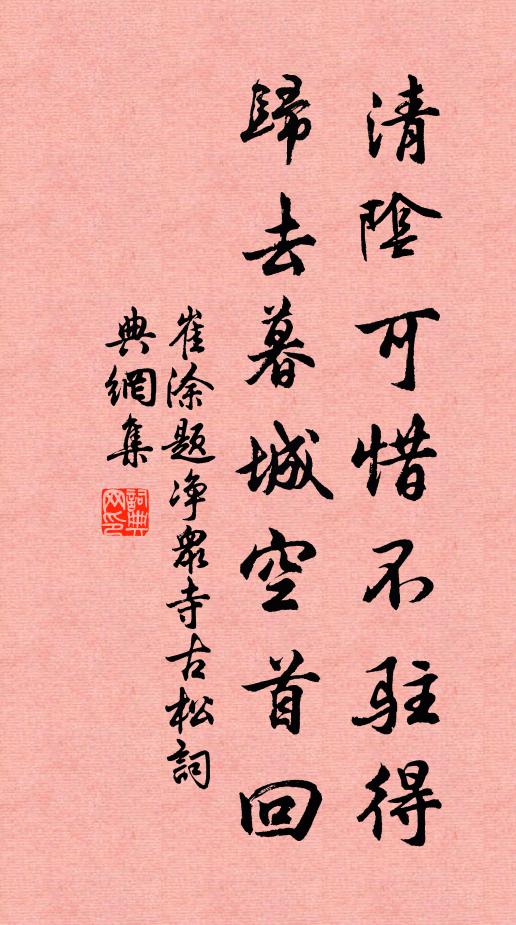 清陰可惜不駐得
歸去暮城空首回
崔涂題净衆寺古松詞
典網集
詞典網印